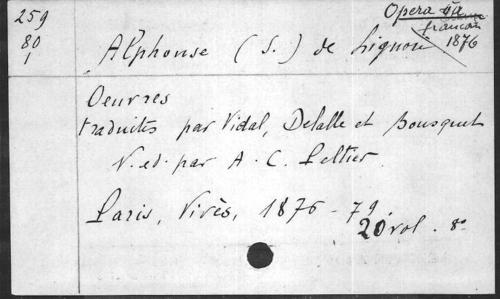 259
80
1
Opera
français
1876
Alphonse (S.) de Liguori
Oeuvres
traduites par Vidal, Delalle et Bousquet
N. ed. par A. C. Peltier
Paris, Vivès, 1876-79
20 vol. 8º